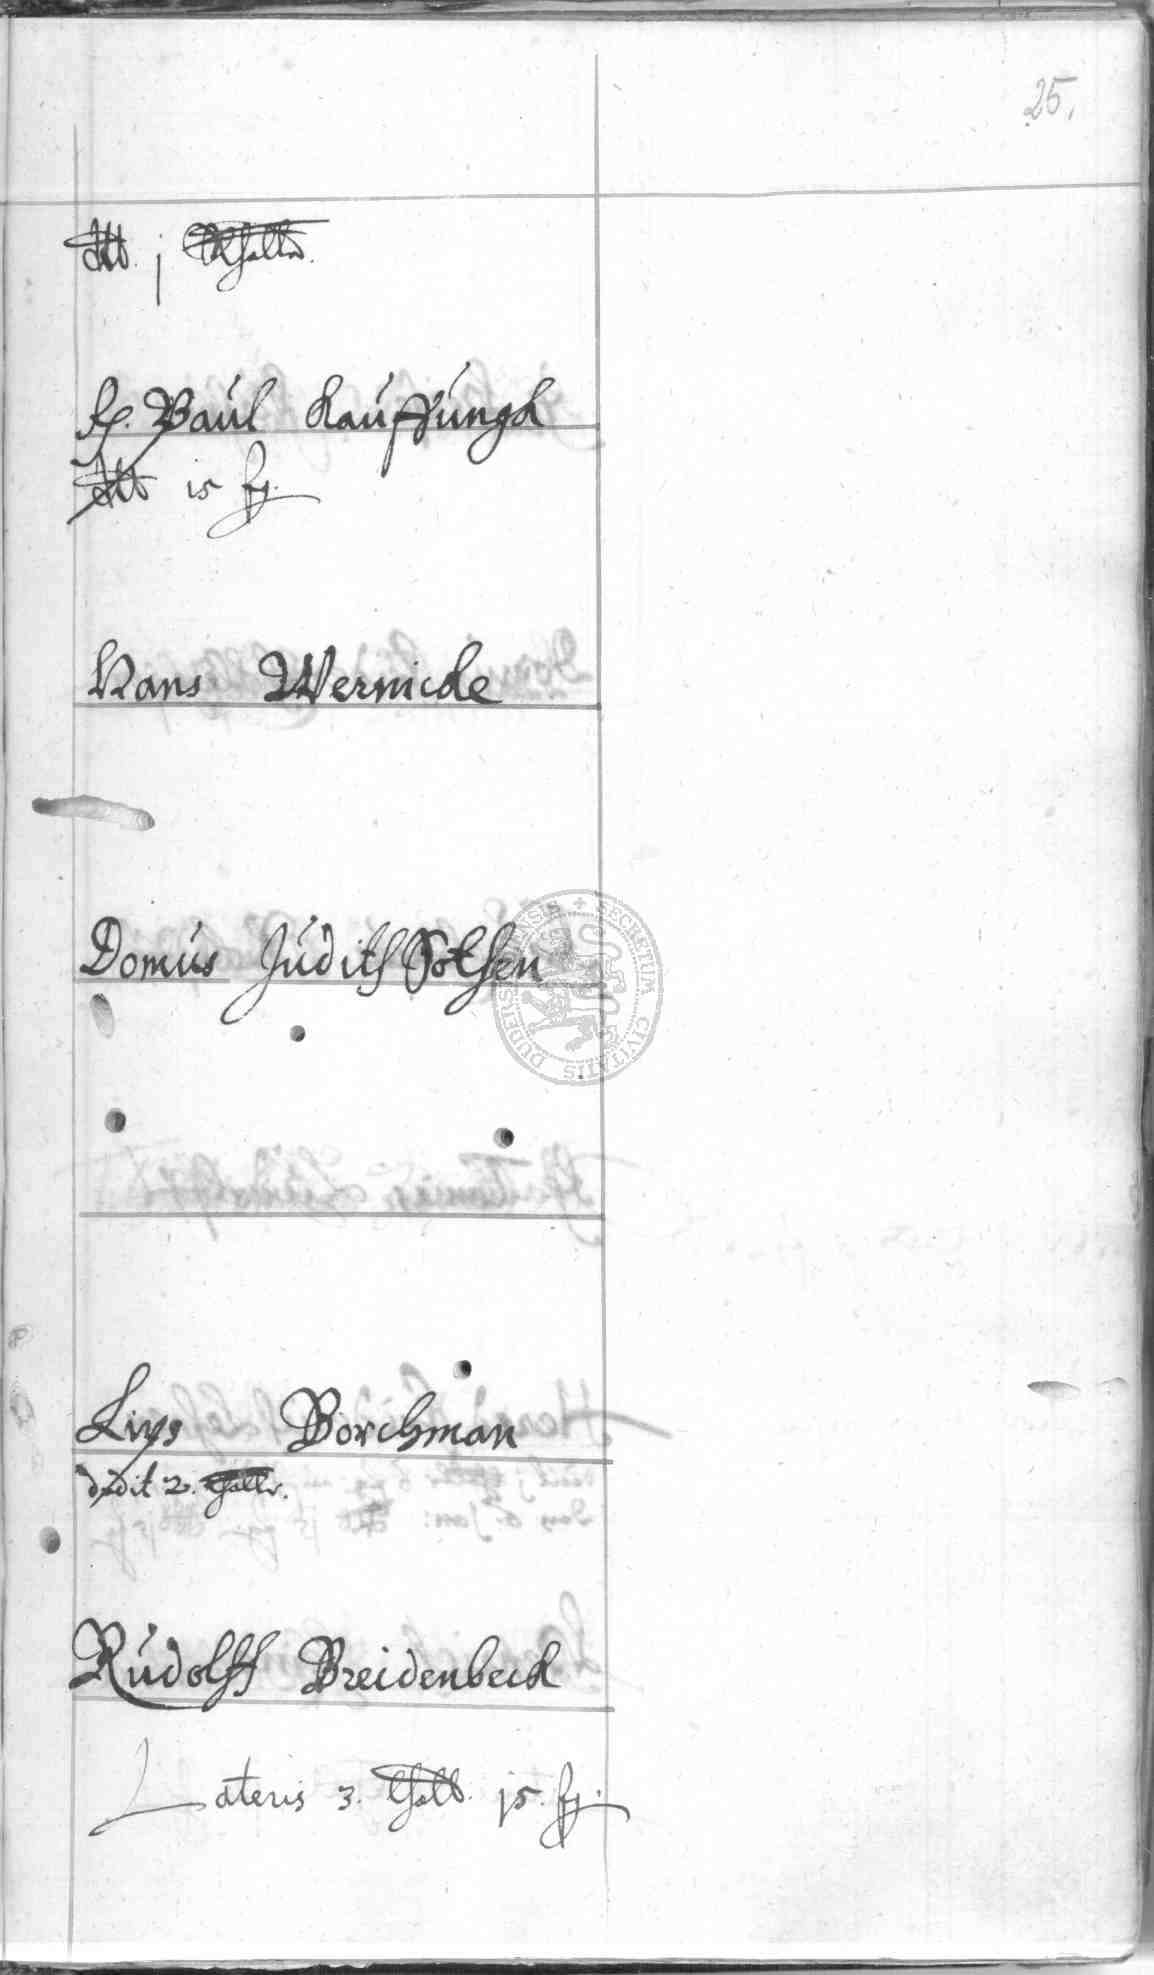 25.
dtt. j Thaller.
H. Paul Kauffungk
dtt 15 fg.
Hans Wernicke
Domus Judith Sothen
Livs Borchman
dedit 2. Thaller.
Rudolff Breidenbeck
Lateris 3. Thall. 15. fg.
SECRETUM CIVITATIS DUDERSTADENSIS